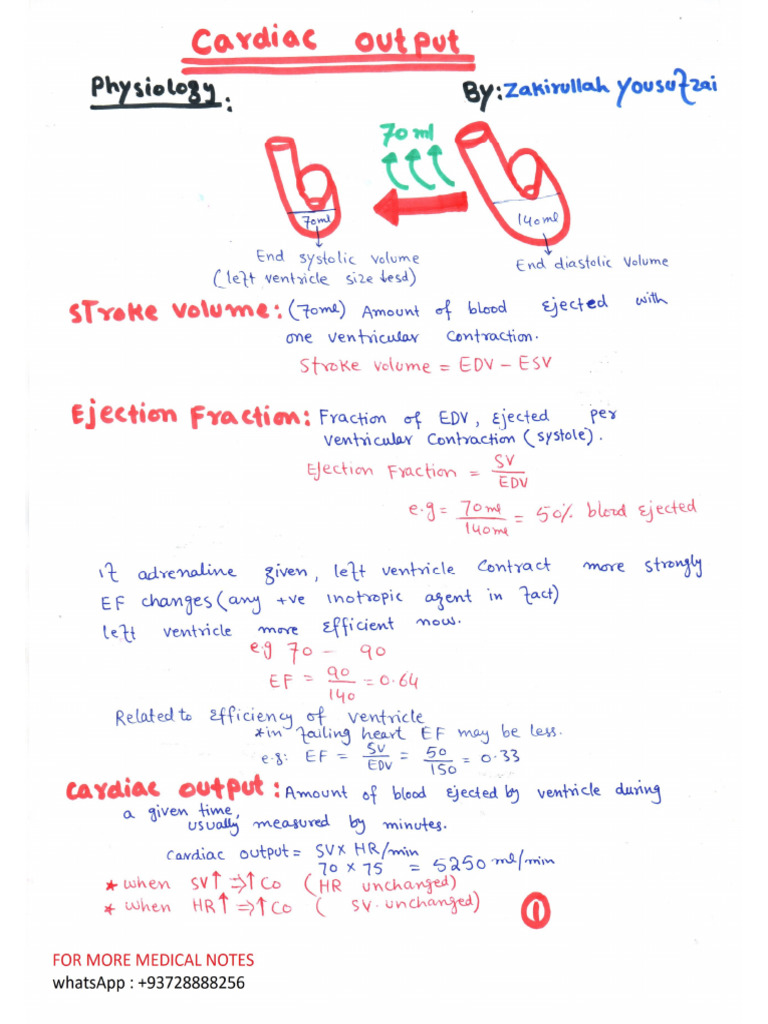 Cardiac output
Physiology: By: Zakirullah Yousufzai
70 ml
70ml 140ml
End systolic volume
(left ventricle size ↓esd)
End diastolic volume
Stroke volume: (70ml) Amount of blood ejected with
one ventricular contraction.
Stroke volume = EDV - ESV
Ejection Fraction: Fraction of EDV, ejected per
ventricular contraction (systole).
Ejection Fraction = SV/EDV
e.g = 70ml/140ml = 50% blood ejected
if adrenaline given, left ventricle contract more strongly
EF changes (any +ve inotropic agent in fact)
left ventricle more efficient now.
e.g 70 - 90
EF = 90/140 = 0.64
Related to efficiency of ventricle
*in failing heart EF may be less.
e.g: EF = SV/EDV = 50/150 = 0.33
cardiac output: Amount of blood ejected by ventricle during
a given time,
usually measured by minutes.
cardiac output = SV x HR/min
70 x 75 = 5250 ml/min
* when SV↑ ⇒ ↑Co (HR unchanged)
* when HR↑ ⇒ ↑Co ( SV. unchanged)
1
FOR MORE MEDICAL NOTES
whatsApp : +93728888256